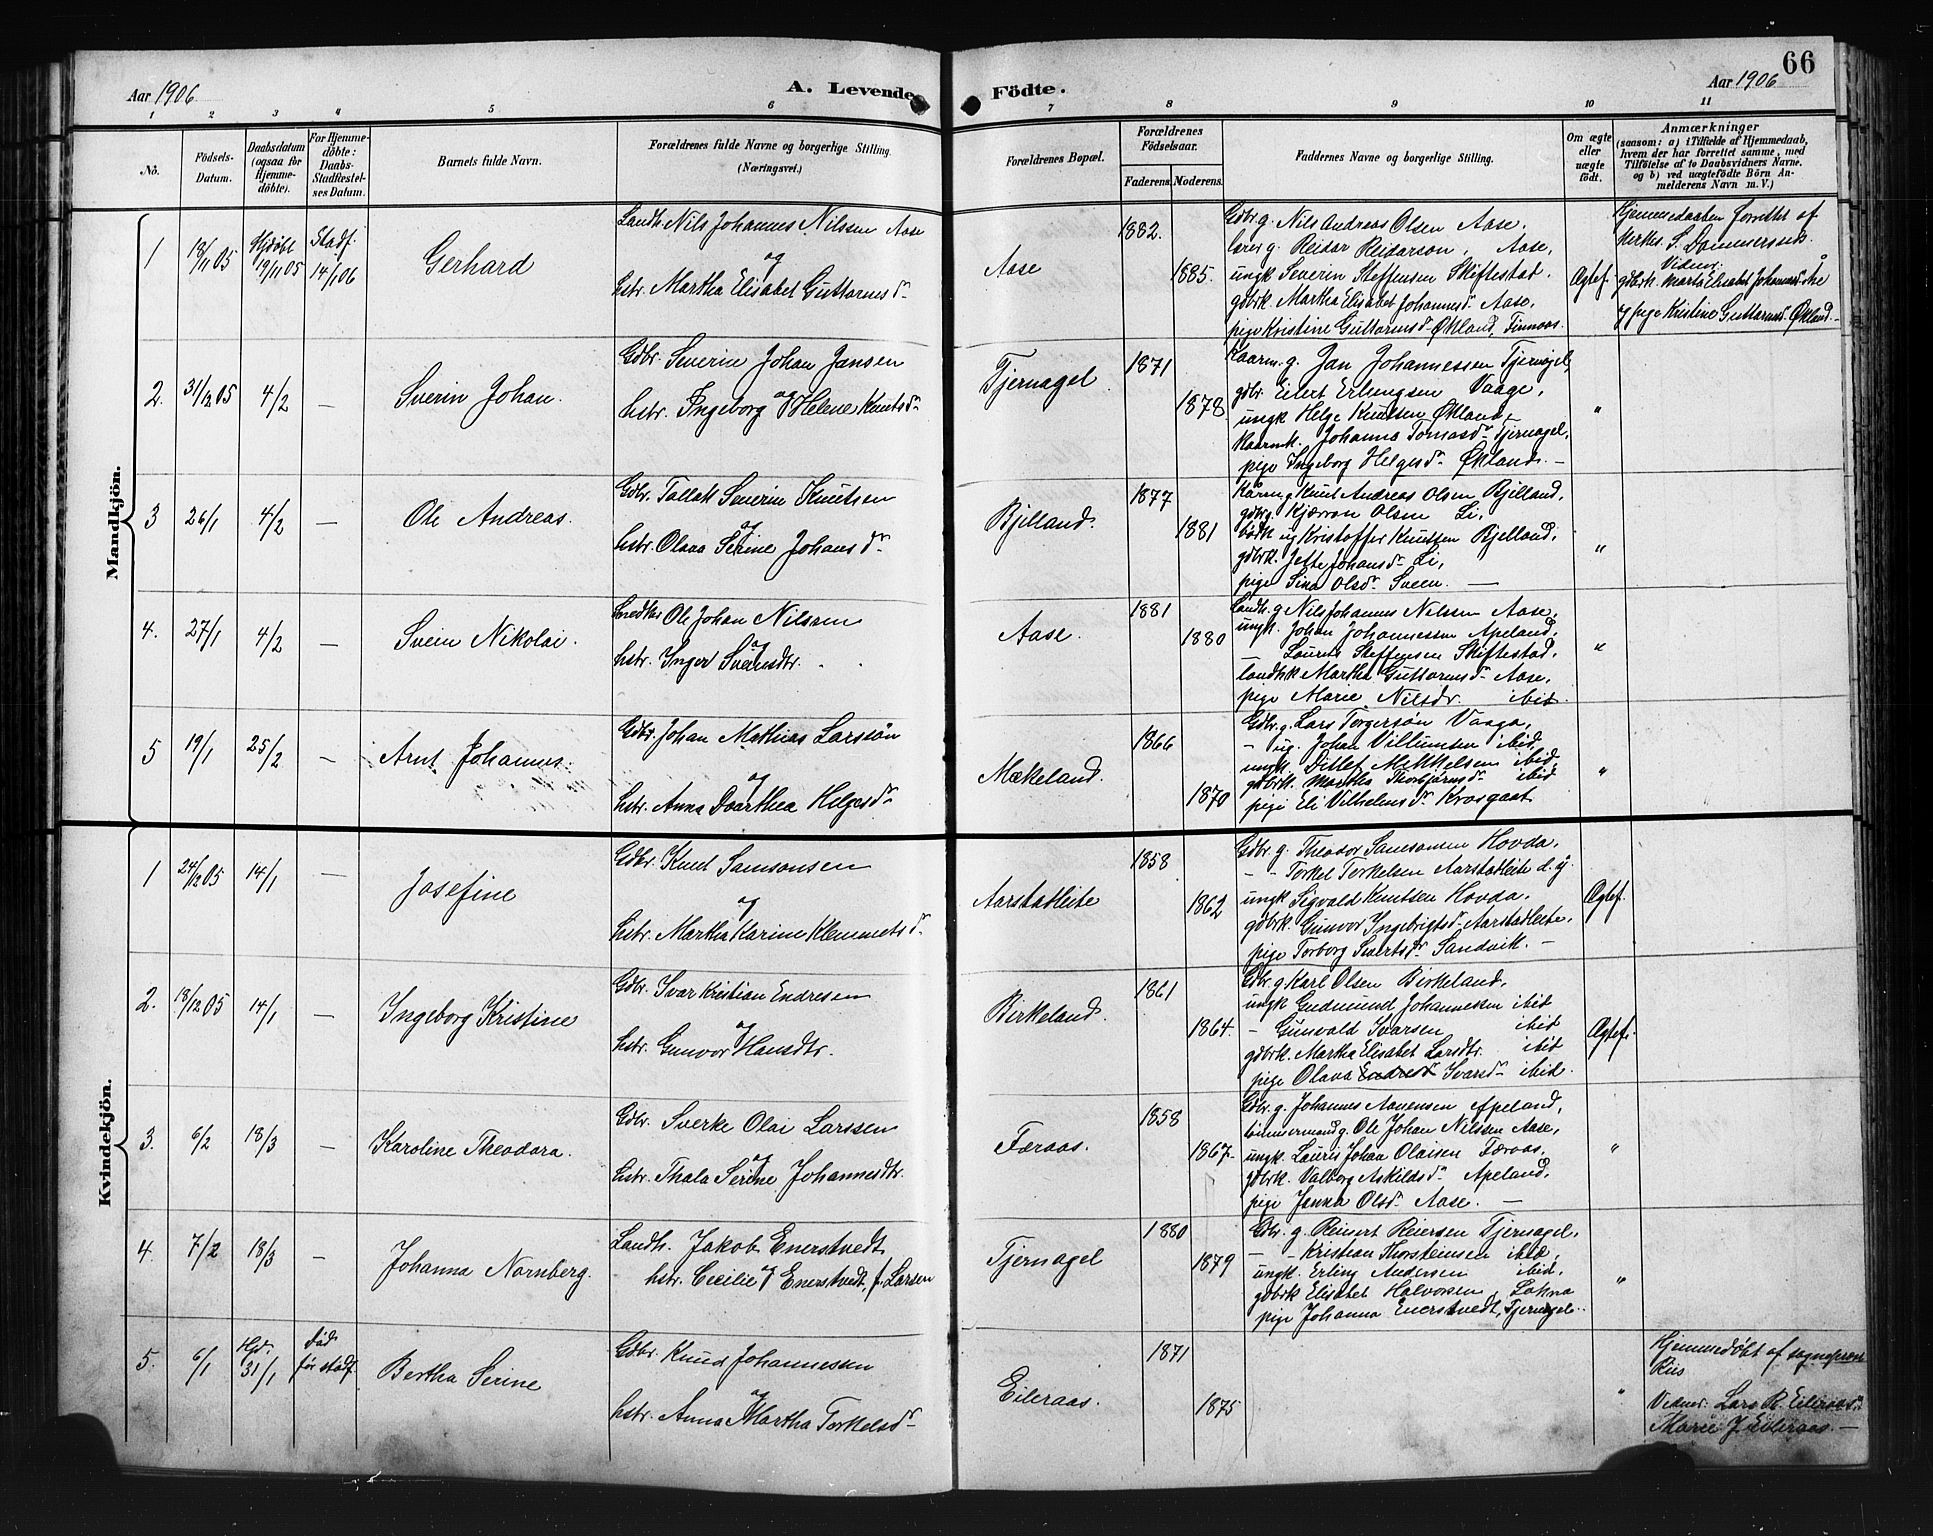 66
Aar 1906
A. Levende
Födte.
Aar 1906
1 2 3 4 5 6 7 8 9 10 11
No.
Födsels-Datum.
Daabsdatum (ogsaa for Hjemme-döbte).
For Hjemme-döbte: Daabs-Stadfæstel-ses Datum.
Barnets fulde Navn.
Forældrenes fulde Navne og borgerlige Stilling.
(Næringsvei.)
Forældrenes Bopæl.
Forældrenes Födselsaar.
Faderens. Moderens.
Faddernes Navne og borgerlige Stilling.
Om ægte eller uægte födt.
Anmærkninger
(saasom: a) i Tilfælde af Hjemmedaab,
hvem der har forrettet samme, med
Tilföielse af to Daabsvidners Navne.
og b) ved uægtefödte Börn An-
melderens Navn m. V.)
Mandkjön.
1 18/11 05 Hjdøbt 19/11 05 Stadf. 14/1 06 Gerhard
Landh. Nils Johannes Nilssen Aase
og
hstr. Martha Elisabet Guttormsdr
Aase 1882. 1885.
Gdbr. g. Nils Andreas Olsen Aase,
g. Reidar Reidarson, Aase,
ungk Severin Steffensen Skiftestad.
gdbrk. Martha Elisabet Johannesdr Aase,
pige Kristine Guttormsdr Økland, Finnaas.
Ægtef.
Hjemmedaaben forrettet af
S.
Vidner:
gdbrk. Marta Elisabet Johannesdr Åse
og pige Kristine Guttormsdr Økland
2. 31/12 05 4/2 — Sverin Johan.
Gdbr. Severin Johan Jansen
og
hstr. Ingeborg Helene Knutsdr
Tjernagel 1871 1878
Kaarm. g. Jan Johannessen Tjernagel,
gdbr. Eilert Erlingsen Vaage,
ungk Helge Knutsen Økland,
Kaarmk. Johanna Tomasdr Tjernagel,
pige Ingeborg Helgesdr Økland. —
"
3 26/1 4/2 — Ole Andreas.
Gdbr. Tallak Severin Knutsen
og
hstr. Olava Serine Johansdr
Bjelland. 1877 1881
Kårm g Knut Andreas Olsen Bjelland,
gdbr g. Olsen Li,
ug Kristoffer Knutsen Bjelland,
gdbrk. Jette Johansdr Li,
pige Sina Olsdr Sveen. —
"
4. 27/1 4/2 — Svein Nikolai.
Snedker Ole Johan Nilssen
og
hstr. Inger Svensdtr.
Aase. 1881 1880
Landh. g Nils Johannes Nilssen Aase,
ungk. Johan Johannessen Apeland,
— Laurits Steffensen Skiftestad,
landhk Martha Guttormsdr Aase,
pige Marie Nilsdr. ibid.
"
5 19/1 25/2 — Arnt Johannes.
Gdbr. Johan Mathias Larssøn
og
hstr. Anna Doarthea Helgesdr
Mækeland. 1866 1870
Gdbr. g. Lars Torgersøn Vaaga,
— ug. Johan Villumsen ibid,
ungk Ditlef Mikkelsen ibid,
gdbrk. Martha Thorbjørnsdr ibid
pige Eli Vilhelmsdr Krosgaat
"
Kvindekjön.
1 24/12 05 14/1 — Josefine
Gdbr. Knut Samsonsen
og
hstr. Martha Karine Klemmetsdr
Aarstadleite 1858 1862
Gdbr. g. Theodor Samsonsen Hovda,
- - Torkel Torkelsen Aarstadleite d. y.
ungk Sigvald Knutsen Hovda,
gdbrk. Gunvor Ingebrigtsdr Aarstadleite,
pige Torborg Sivertsdr Sandvik. —
Ægtef.
2. 18/12 05 14/1 — Ingeborg Kristine
Gdbr. Ivar Kristian Endresen
og
hstr. Gunvor Hansdtr.
Birkeland. 1861 1864.
Gdbr. g Karl Olsen Birkeland,
ungk Gudmund Johannessen ibid
— Gunvald Ivarsen ibid
gdbrk. Martha Elisabet Larsdtr. ibid
pige Olava Endresdr Ivarsdr ibid.
Ægtef.
3. 6/2 18/3 — Karoline Theodora.
Gdbr. Sverke Olai Larssen
og
hstr. Thala Serine Johannesdtr.
Færaas. 1858 1867.
Gdbr. g. Johannes Aamensen Apeland,
tømmermand g. Ole Johan Nilssen Aase,
ungk. Laurits Johan Olaisen Færaas,
gdbrk. Valborg Askildsdr Apeland,
pige Janna Olsdr Aase. —
"
4. 7/2 18/3 — Johanna Nornberg.
Landh. Jakob Enerstvedt
og
hstr. Cecilie Enerstvedt, f. Larsen
Tjernagel 1880 1879
Gdbr. g. Reinert Reiersen Tjernagel,
— - Kristian Thorsteinsen ibid,
ungk. Erling Andersen ibid.
gdbrk Elisabet Halvorsen, Lokna
pige Johanna Enerstvedt, Tjernagel.
"
5. 6/1 Hjd. 31/1 død før stadf. Bertha Serine
Gdbr. Knud Johannessen
og
hstr. Anna Martha Torkelsdr
Eileraas. 1871 1875
"
Hjemmedøbt af sogneprest
Riis
Vidner: Lars R. Eileraas.
Marie J Eileraas. —